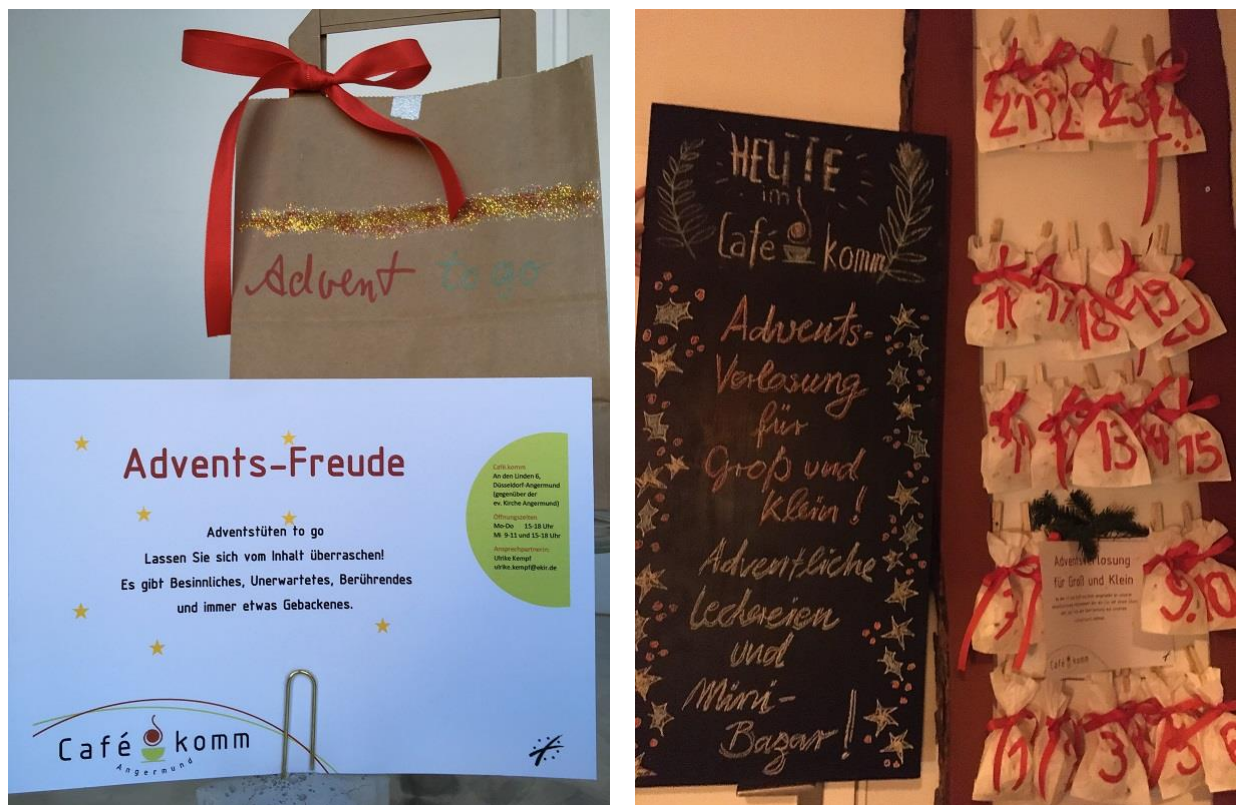 Advent to go
Advents-Freude
Adventstüten to go
Lassen Sie sich vom Inhalt überraschen!
Es gibt Besinnliches, Unerwartetes, Berührendes
und immer etwas Gebackenes.
Café.komm
An den Linden 6,
Düsseldorf-Angermund
(gegenüber der
ev. Kirche Angermund)
Öffnungszeiten
Mo-Do 15-18 Uhr
Mi 9-11 und 15-18 Uhr
Ansprechpartnerin:
Ulrike Kempf
ulrike.kempf@ekir.de
Café komm
Angermund
HEUTE
im
Café komm
Advents-
Verlosung
für
Groß und
Klein!
Adventliche
Leckereien
und
Mini-
Bazar!
21 2 23 24
16 17 18 19 20
11 13 14 15
7 9 10
Adventsverlosung
für Groß und Klein
Café komm
1 3 5 6